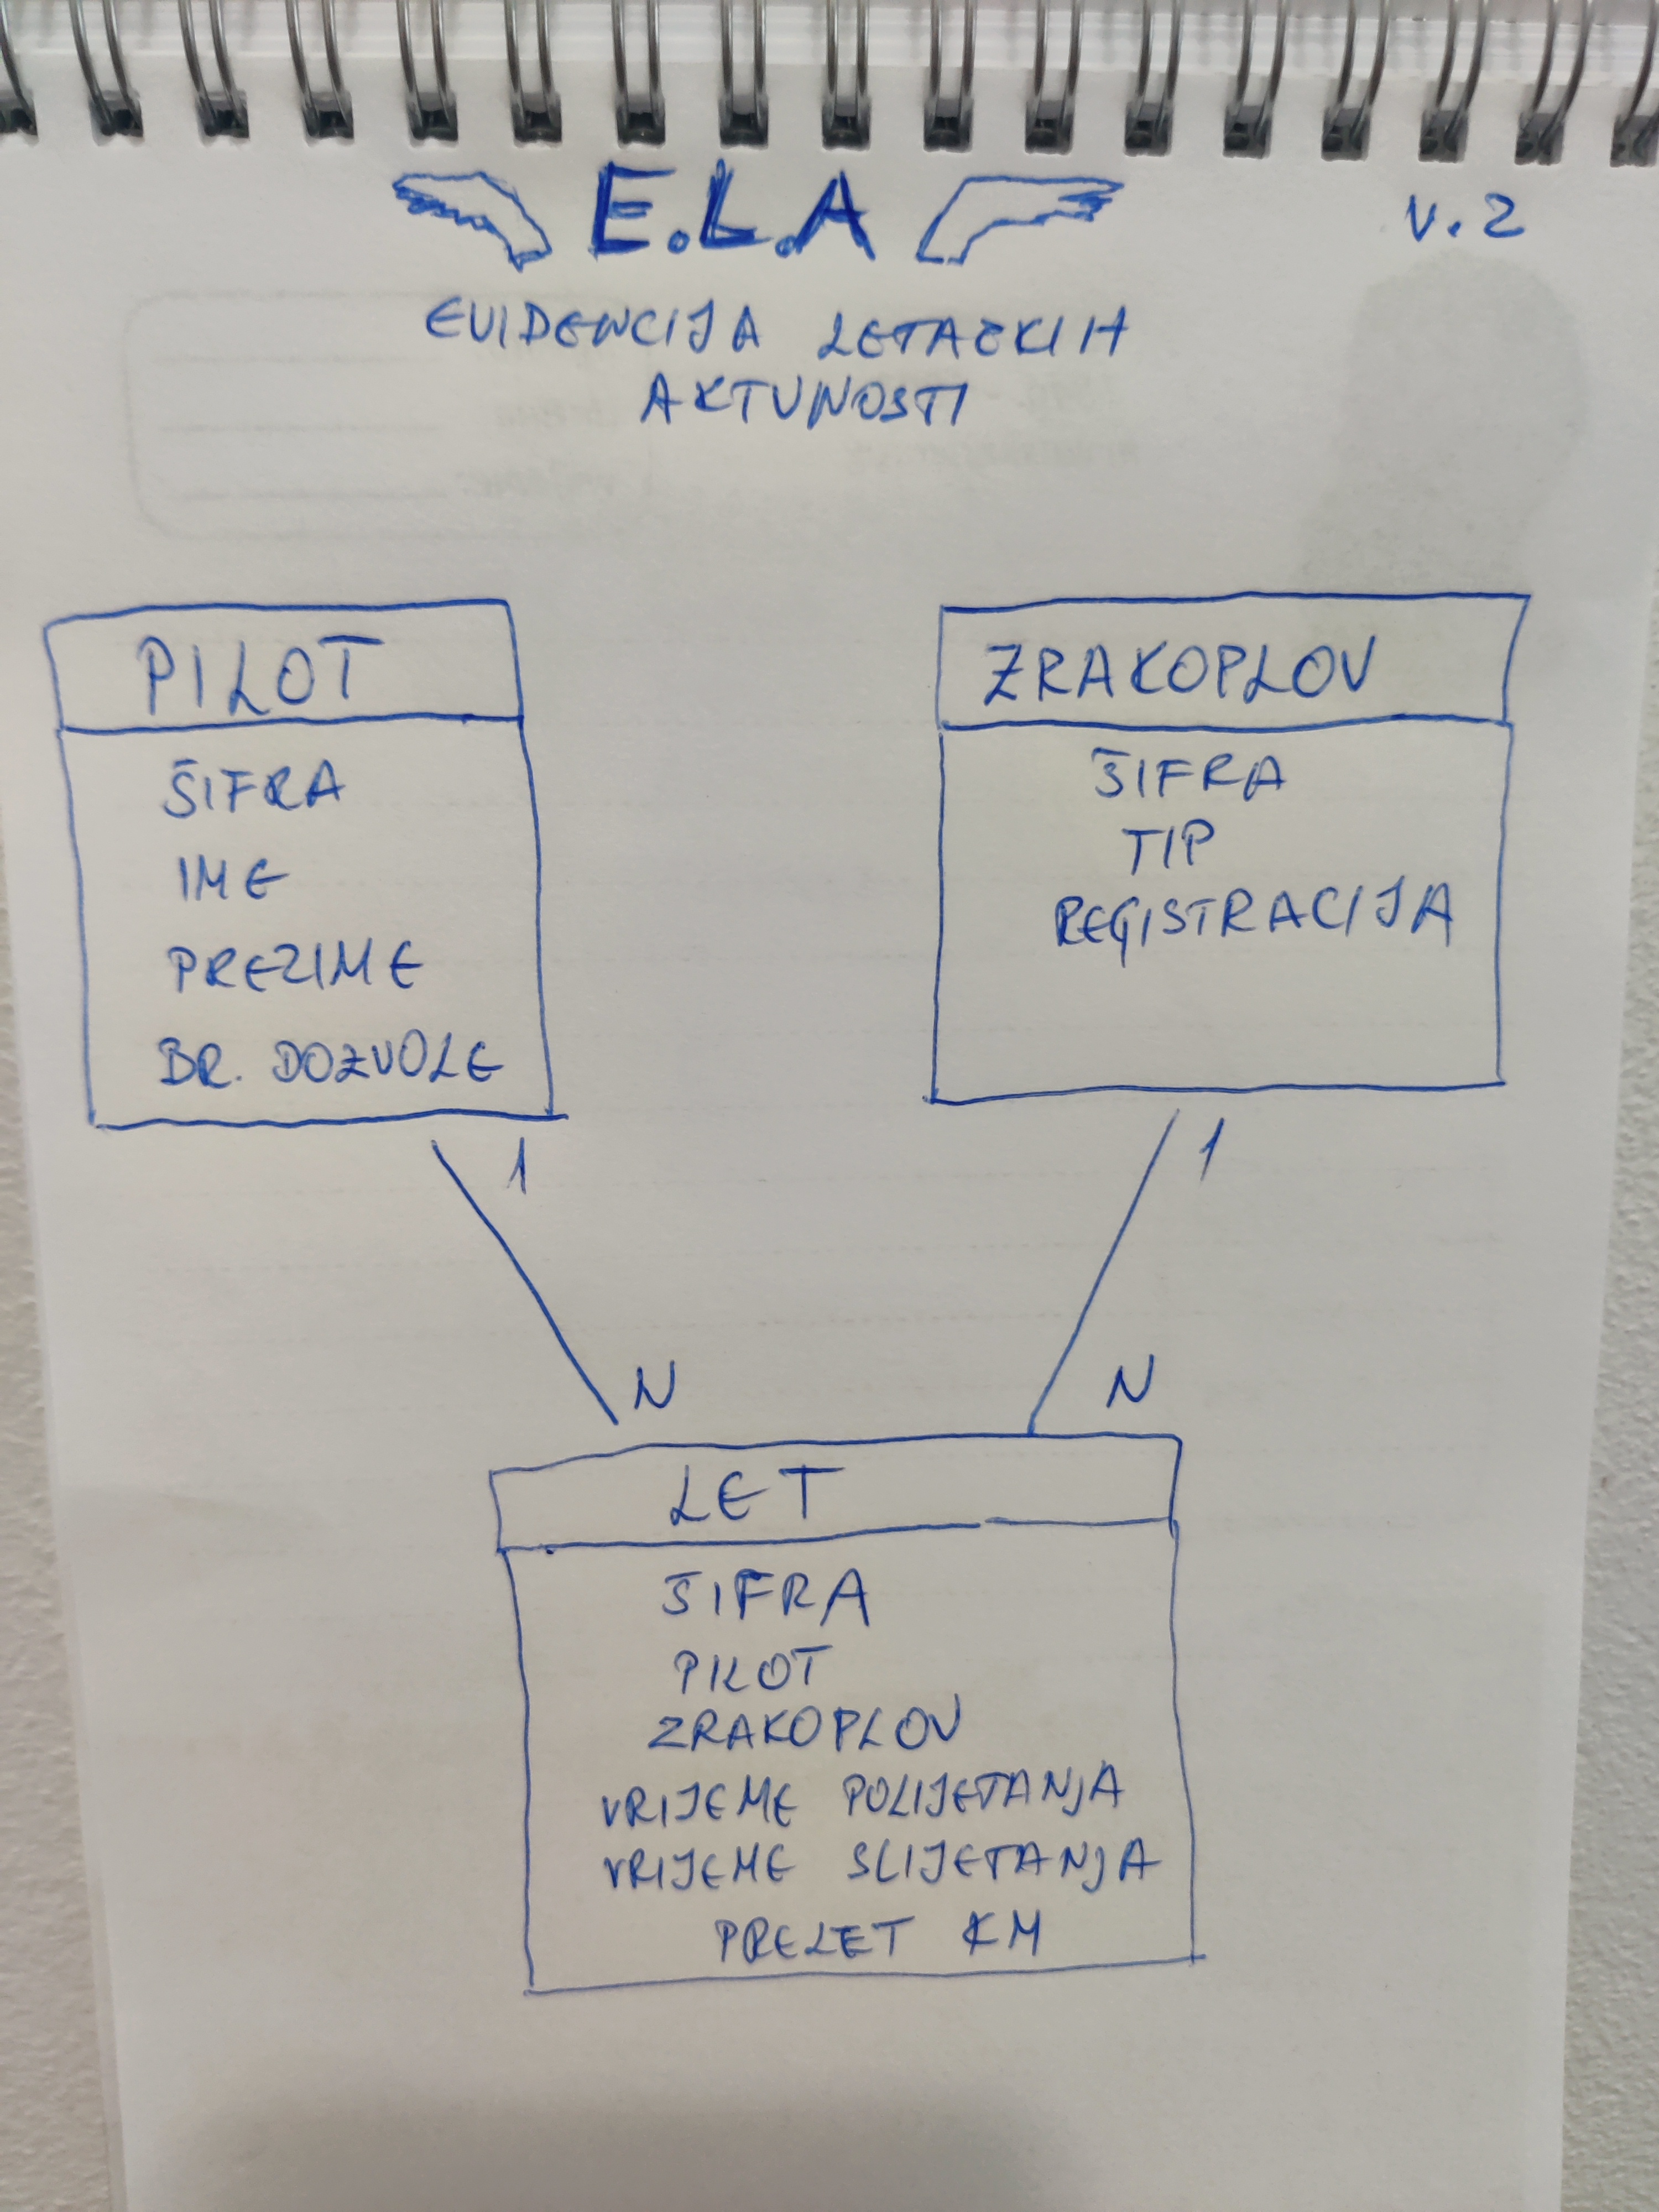 E.L.A
v.2
EVIDENCIJA LETAČKIH
AKTIVNOSTI
PILOT
ŠIFRA
IME
PREZIME
BR. DOZVOLE
ZRAKOPLOV
ŠIFRA
TIP
REGISTRACIJA
1
1
N
N
LET
ŠIFRA
PILOT
ZRAKOPLOV
VRIJEME POLIJETANJA
VRIJEME SLIJETANJA
PRELET KM